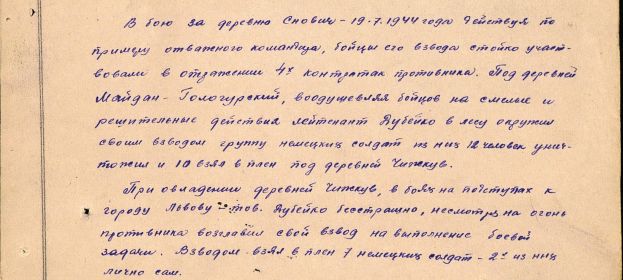 В бою за деревню Снович - 19.7.1944 года действуя по
примеру отважного командира, бойцы его взвода стойко участ-
вовали в отражении 4х контратак противника. Под деревней
Майдан-Гологурский, воодушевляя бойцов на смелые и
решительные действия лейтенант Дубейко в лесу окружил
своим взводом группу немецких солдат из них 12 человек унич-
тожил и 10 взял в плен под деревней Чижкув.
При овладении деревней Чижкув, в боях на подступах к
городу Львову - тов. Дубейко бесстрашно, несмотря на огонь
противника возглавил свой взвод на выполнение боевой
задачи. Взводом взял в плен 7 немецких солдат - 2х из них
лично сам.